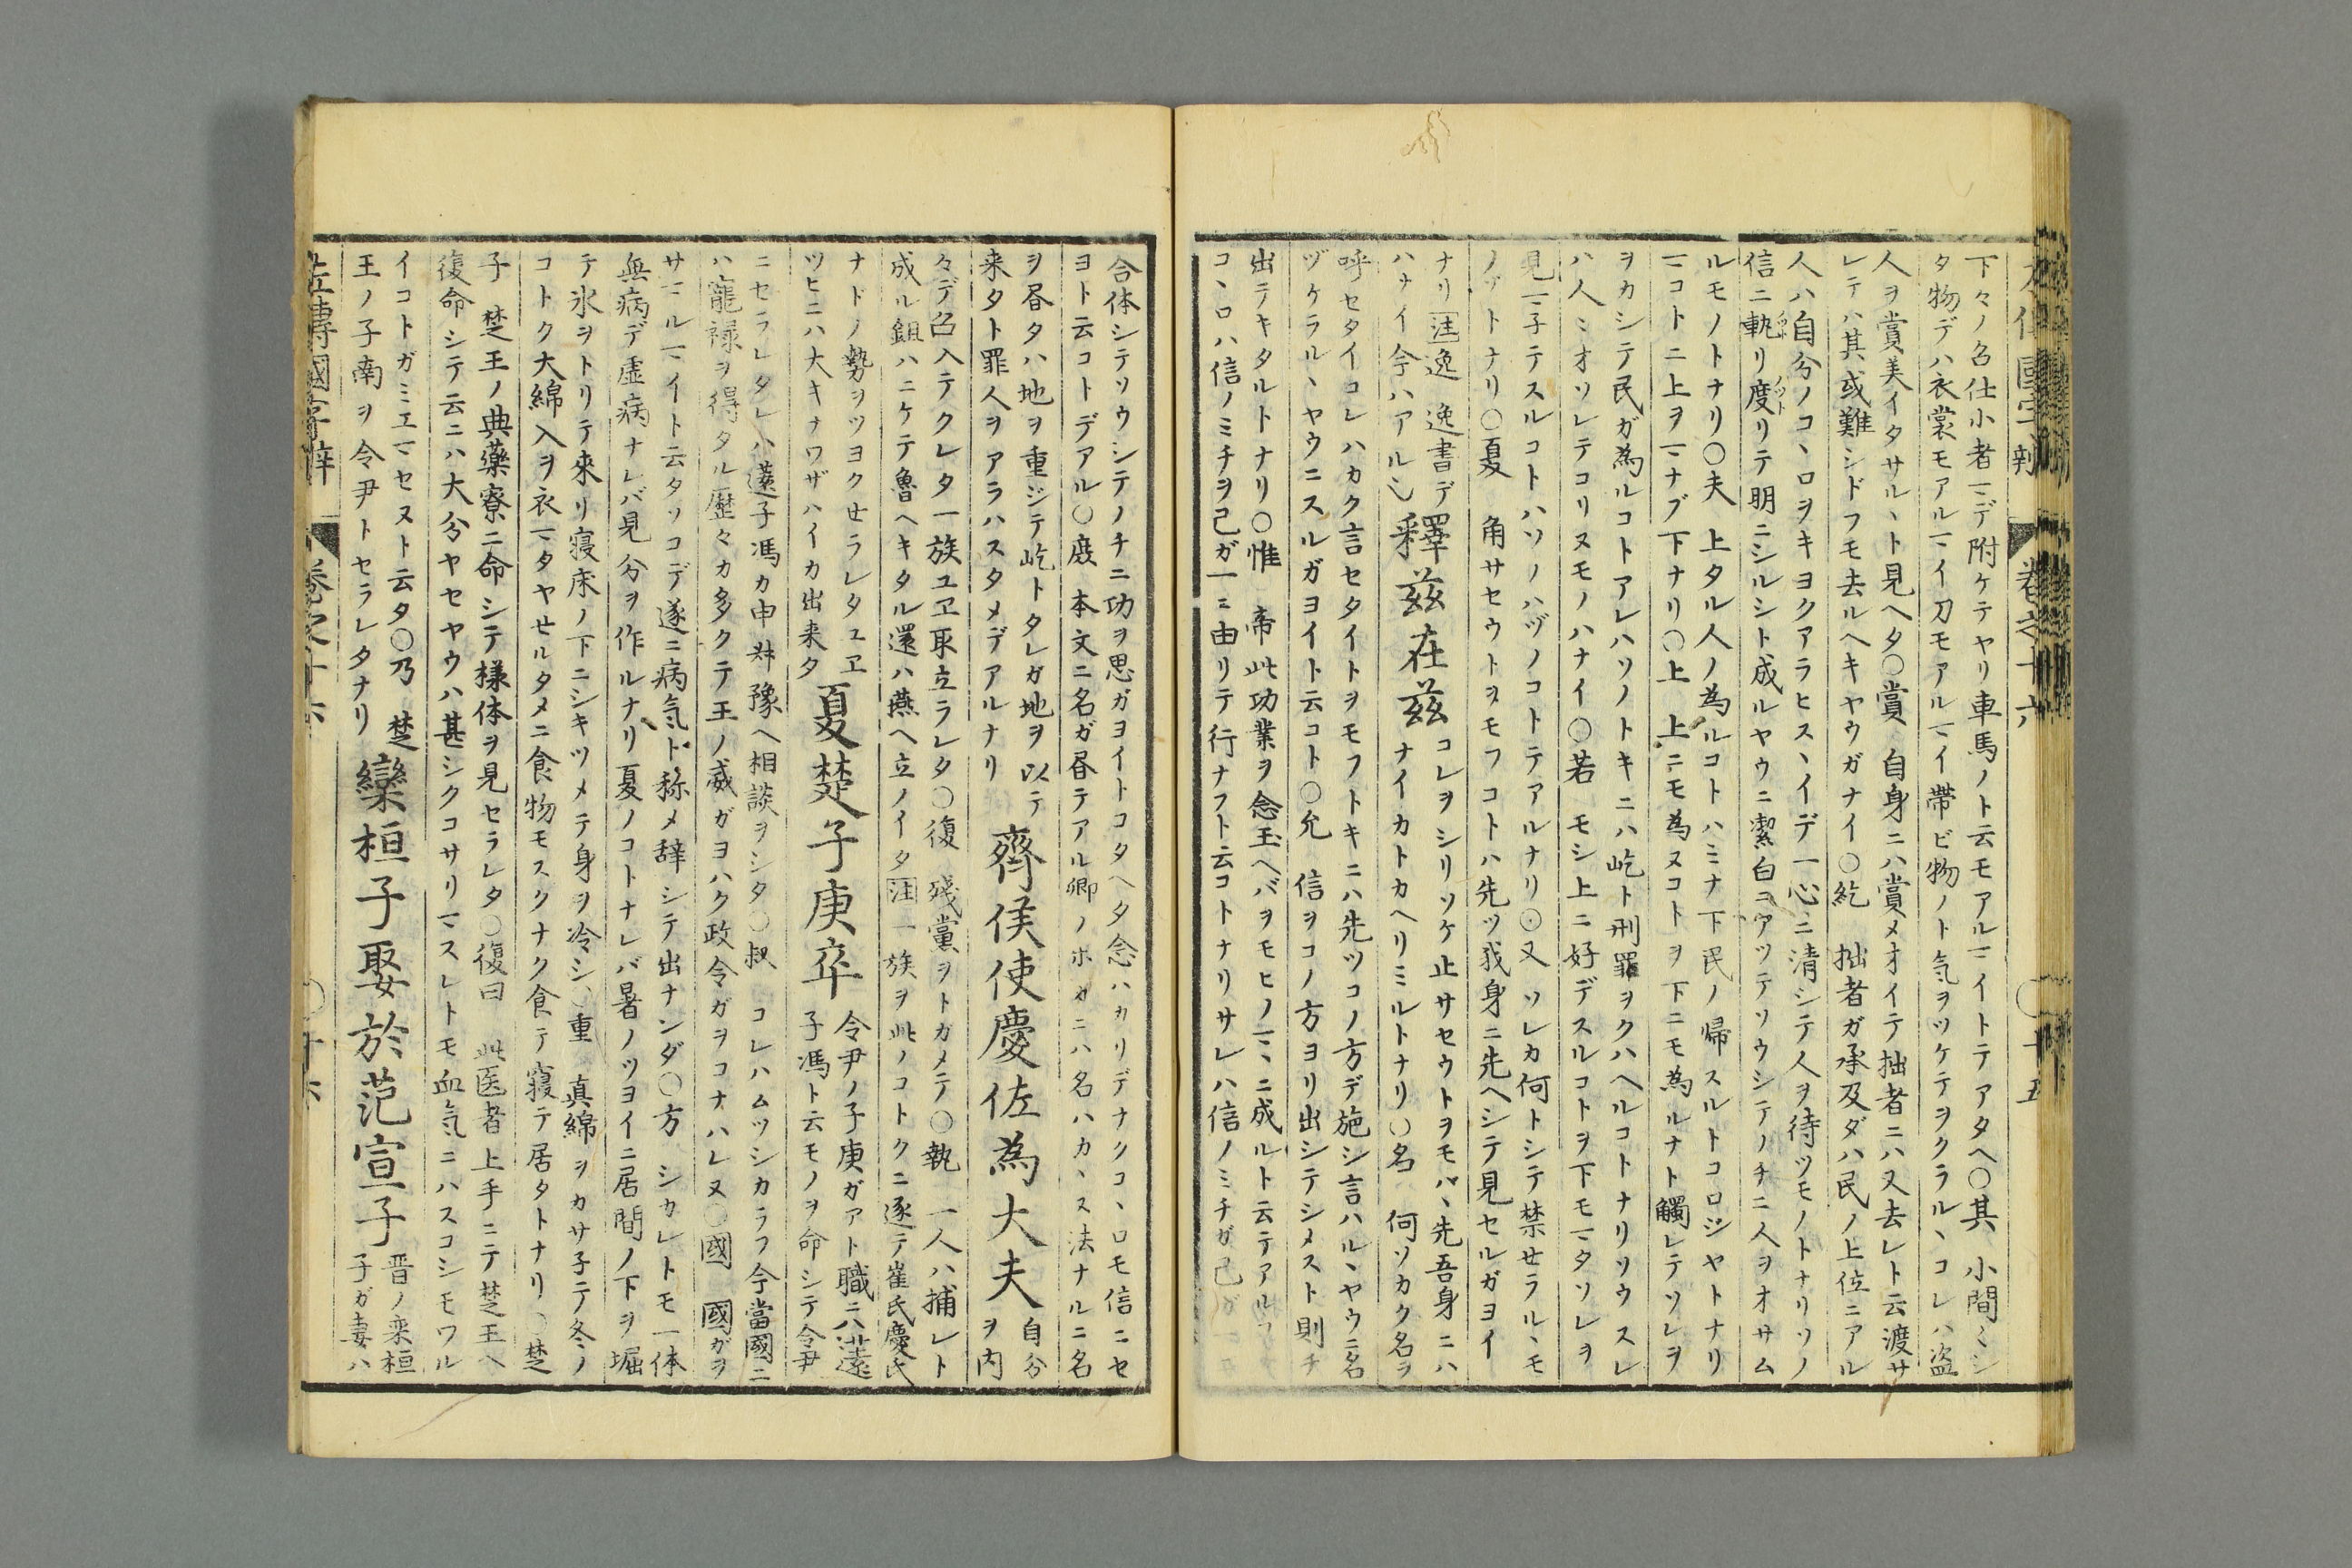 左傳國字辯 卷之十六 〇十五
下々ノ召仕小者マデ附ケテヤリ車馬ノト云モアルマイトテアタヘ〇其 小間ミシ
タ物デハ衣裳モアルマイ刀モアルマイ帶ビ物ノト気ヲツケテヲクラルヽコレハ盜
人ヲ賞美イタサルヽト見ヘタ〇賞 自身ニハ賞メオイテ拙者ニハ又去レト云渡サ
レテハ其或難シドフモ去ルヘキヤウガナイ〇紇 拙者ガ承及ダハ民ノ上位ニアル
人ハ自分ノコヽロヲキヨクアラヒスヽイデ一心ニ清シテ人ヲ待ツモノトナリソノ
信ニ軌リ度リテ明ニシルシト成ルヤウニ潔白ニアツテソウシテノチニ人ヲオサム
ルモノトナリ〇夫 上タル人ノ為ルコトハミナ下民ノ帰スルトコロジヤトナリ
マコトニ上ヲマナブ下ナリ〇上 上ニモ為ヌコトヲ下ニモ為ルナト觸レテソレヲ
ヲカシテ民ガ為ルコトアレハソノトキニハ屹ト刑罪ヲクハヘルコトナリソウスレ
ハ人ミオソレテコリヌモノハナイ〇若 モシ上ニ好デスルコトヲ下モマタソレヲ
見マ子テスルコトハソノハヅノコトテアルナリ〇又 ソレカ何トシテ禁セラルヽモ
ノゾトナリ〇夏 角サセウトヲモフコトハ先ツ我身ニ先ヘシテ見セルガヨイ
ナリ注逸 逸書デ釋茲在茲コレヲシリソケ止サセウトヲモハヽ先吾身ニハ
ハナイ今ハアルシ ナイカトカヘリミルトナリ〇名 何ソカク名ヲ
呼セタイコレハカク言セタイトヲモフトキニハ先ツコノ方デ施シ言ハルヽヤウニ名
ヅケラルヽヤウニスルガヨイト云コト〇允 信ヲコノ方ヨリ出シテシメスト則チ
出テキタルトナリ〇惟 帝此功業ヲ念玉ヘバヲモヒノマヽニ成ルト云テアル
コヽロハ信ノミチヲ己ガ一ニ由リテ行ナフト云コトナリサレハ信ノミチガ己ガ一
合体シテソウシテノチニ功ヲ思ガヨイトコタヘタ念ハカリデナクコヽロモ信ニセ
ヨト云コトデアル〇庶 本文ニ名ガ昼テアル卿ノホカニハ名ハカヽス法ナルニ名
ヲ昼タハ地ヲ重ジテ屹トタレガ地ヲ以テ齊侯使慶佐為大夫自分
来タト罪人ヲアラハスタメデアルナリ ヲ内
々デ召入テクレタ一族ユヱ取立ラレタ〇復 殘黨ヲトガメテ〇執 一人ハ捕レト
成ル鉏ハニケテ魯ヘキタル還ハ燕ヘ立ノイタ注一族ヲ此ノコトクニ逐テ崔氏慶氏
ナドノ勢ヲツヨクセラレタユヱ夏楚子庚卒令尹ノ子庚ガアト職ニハ薳
ツヒニハ大キナワザハイカ出来タ 子馮ト云モノヲ命シテ令尹
ニセラレタレハ薳子馮カ申叔豫ヘ相談ヲシタ〇叔 コレハムツシカラフ今當國ニ
ハ寵禄ヲ得タル歴々カ多クテ王ノ威ガヨハク政令ガヲコナハレヌ〇國 國ガヲ
サマルマイト云タソコデ遂ニ病気ト称メ辞シテ出ナンダ〇方 シカレトモ一体
無病デ虚病ナレバ見分ヲ作ルナリ夏ノコトナレバ暑ノツヨイニ居間ノ下ヲ堀
テ氷ヲトリテ來リ寝床ノ下ニシキツメテ身ヲ冷シ〇重 真綿ヲカサ子テ冬ノ
コトク大綿入ヲ衣マタヤセルタメニ食物モスクナク食テ寝テ居タトナリ〇楚
子 楚王ノ典藥寮ニ命シテ様体ヲ見セラレタ〇復曰 此医者上手ニテ楚王ヘ
復命シテ云ニハ大分ヤセヤウハ甚シクコサリマスレトモ血気ニハスコシモワル
イコトガミエマセヌト云タ〇乃 楚欒桓子娶於范宣子晋ノ栾桓
王ノ子南ヲ令尹トセラレタナリ 子ガ妻ハ
左傳國字辯 卷之十六 〇十六